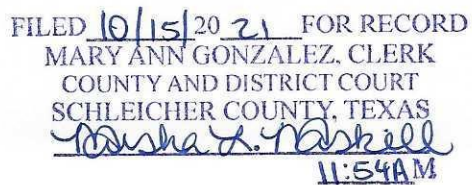 FILED 10/15/20 21 FOR RECORD
MARY ANN GONZALEZ, CLERK
COUNTY AND DISTRICT COURT
SCHLEICHER COUNTY, TEXAS
L.
11:54A M